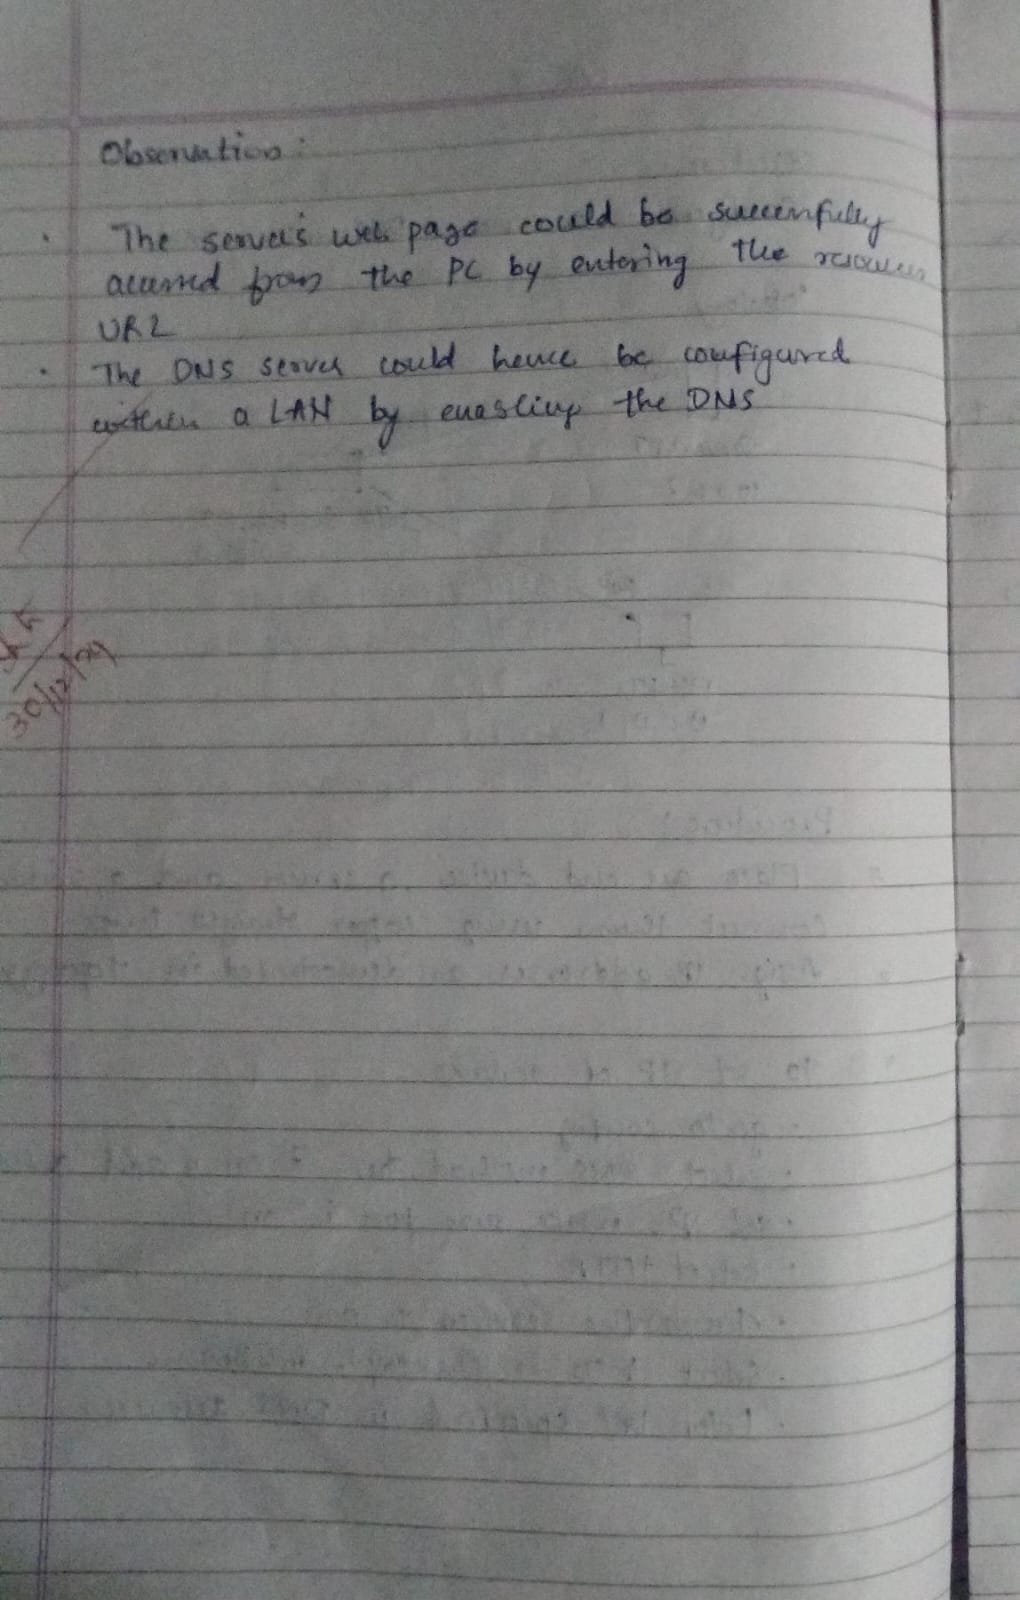 Observation:
• The server's web page could be successfully
accessed from the PC by entering the
URL
• The DNS server could hence be configured
within a LAN by enabling the DNS
30/12/24